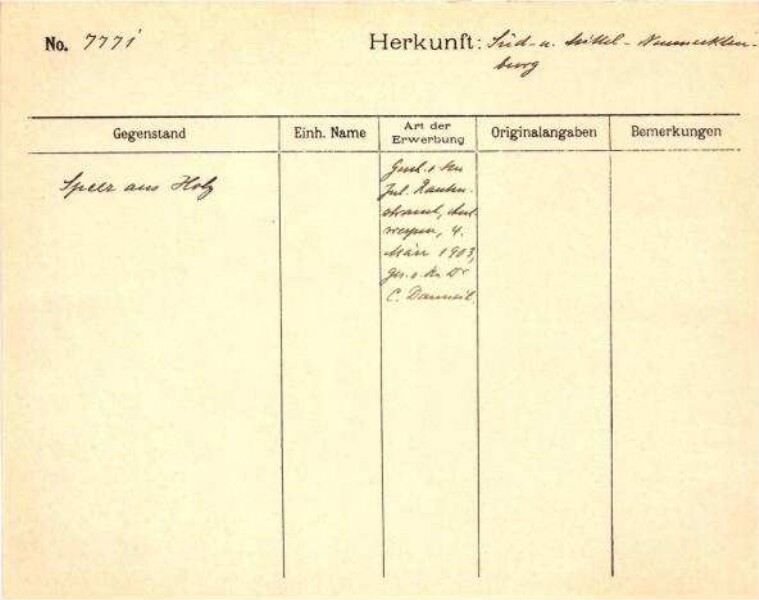 No. 7771 Herkunft: Süd- u. Mittel-Neumecklen-
burg
Gegenstand Einh. Name Art der Erwerbung Originalangaben Bemerkungen
Speer aus Holz
Gesch. v. Hn
Jul. Rauten-
strauch, Ant-
werpen, 4.
März 1903,
ges. v. Hn. Dr
C. Danneil.